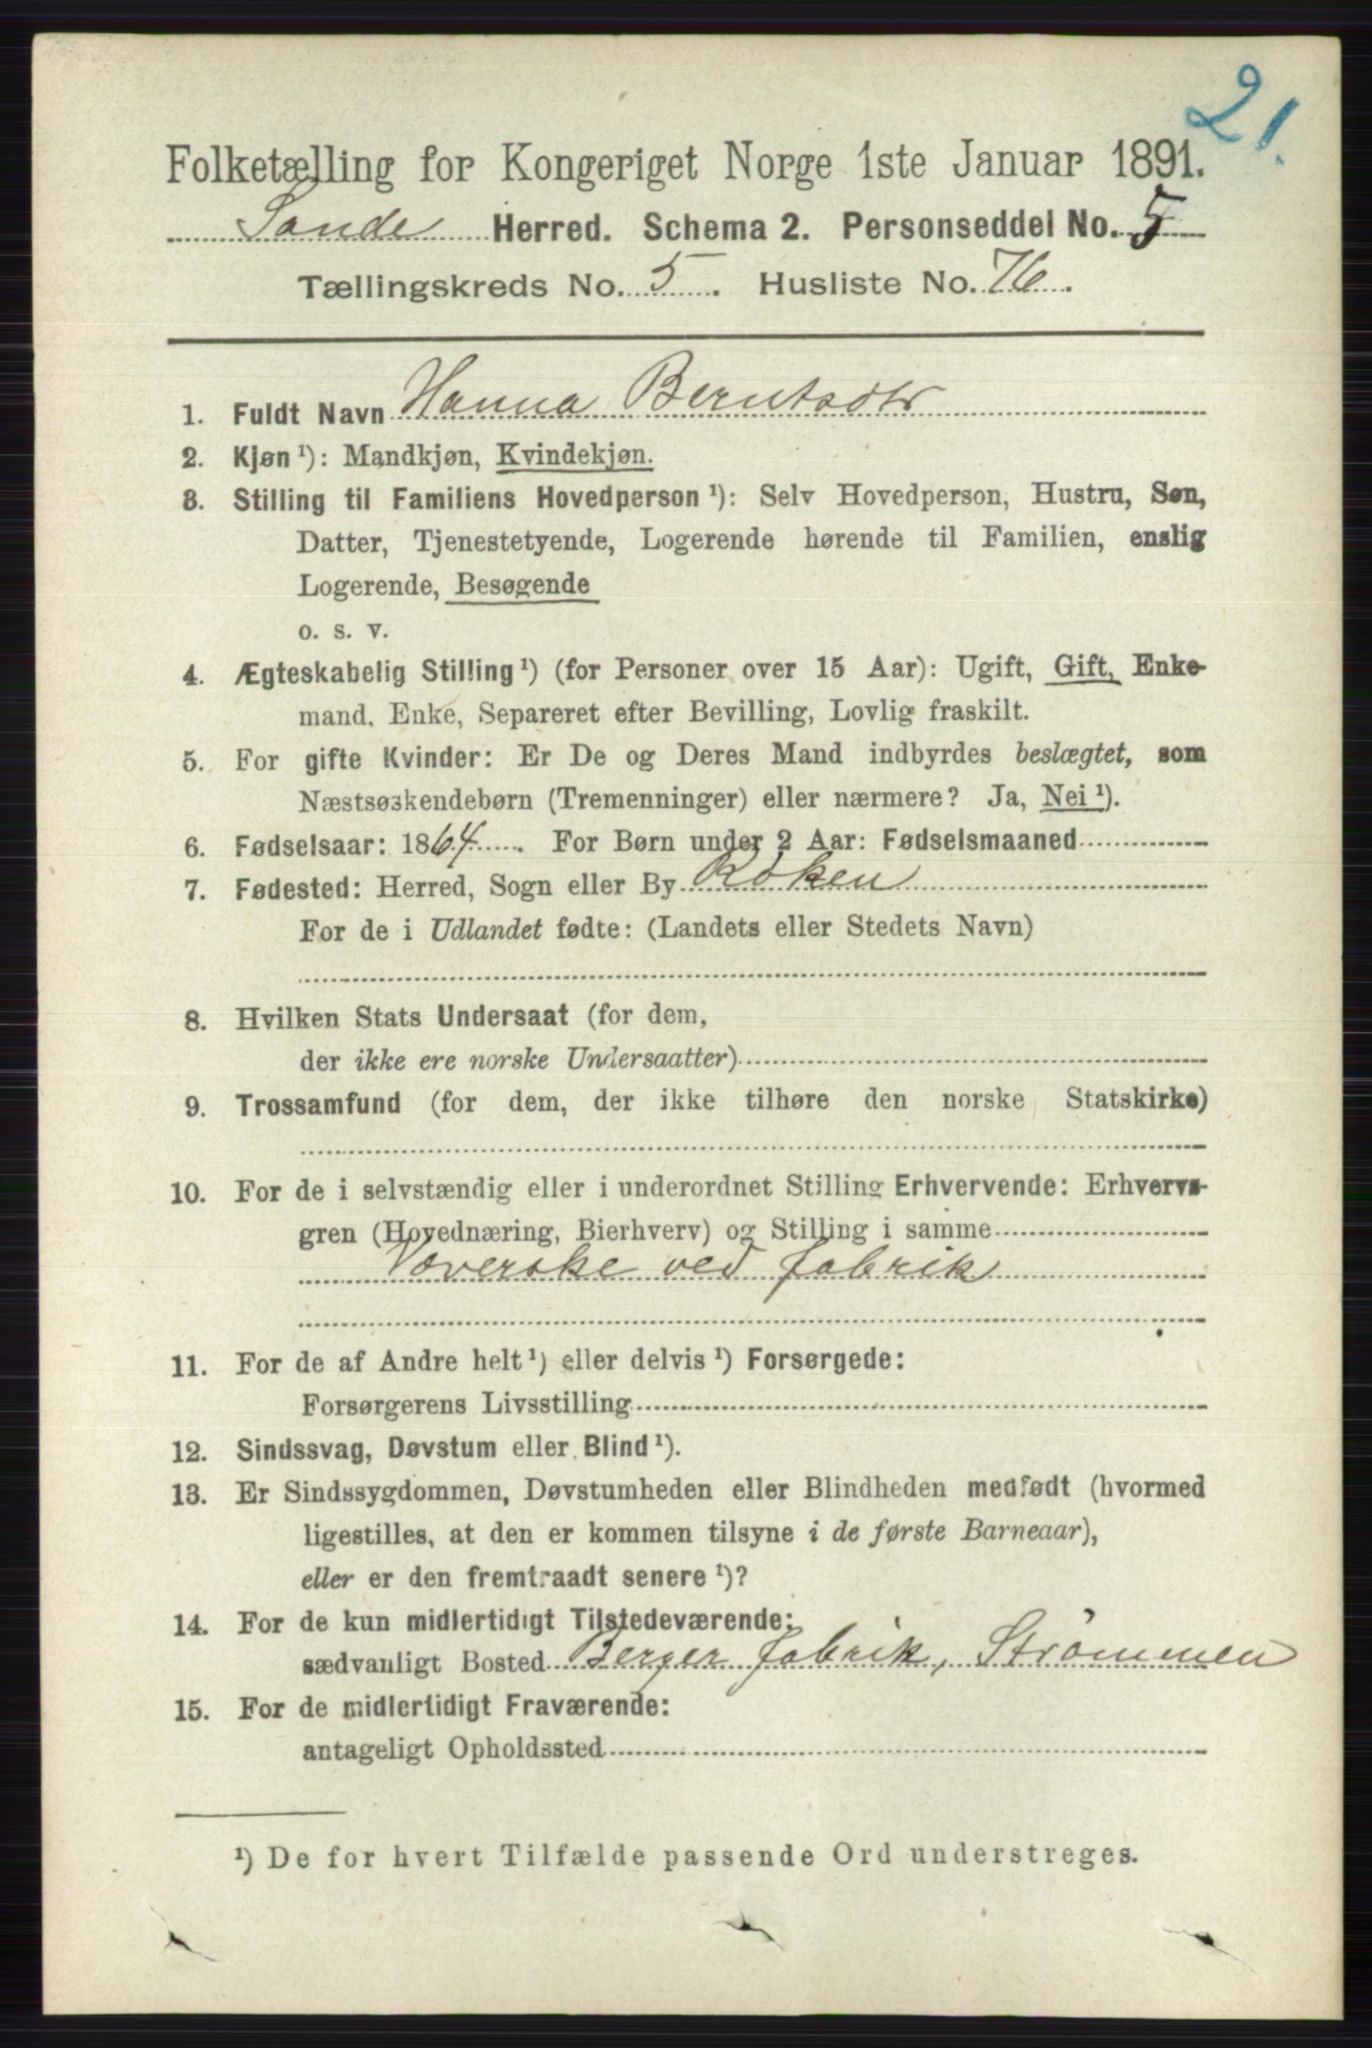 21.
Folketælling for Kongeriget Norge 1ste Januar 1891.
Sande Herred. Schema 2. Personseddel No. 5
Tællingskreds No. 5. Husliste No. 76.
1. Fuldt Navn Hanna Berntsdtr
2. Kjøn ¹): Mandkjøn, Kvindekjøn.
3. Stilling til Familiens Hovedperson ¹): Selv Hovedperson, Hustru, Søn,
Datter, Tjenestetyende, Logerende hørende til Familien, enslig
Logerende, Besøgende
o. s. v.
4. Ægteskabelig Stilling ¹) (for Personer over 15 Aar): Ugift, Gift, Enke-
mand, Enke, Separeret efter Bevilling, Lovlig fraskilt.
5. For gifte Kvinder: Er De og Deres Mand indbyrdes beslægtet, som
Næstsøskendebørn (Tremenninger) eller nærmere? Ja, Nei ¹).
6. Fødselsaar: 1864. For Børn under 2 Aar: Fødselsmaaned
7. Fødested: Herred, Sogn eller By Røken
For de i Udlandet fødte: (Landets eller Stedets Navn)
8. Hvilken Stats Undersaat (for dem,
der ikke ere norske Undersaatter)
9. Trossamfund (for dem, der ikke tilhøre den norske Statskirke)
10. For de i selvstændig eller i underordnet Stilling Erhvervende: Erhvervs-
gren (Hovednæring, Bierhverv) og Stilling i samme
Væverske ved fabrik
11. For de af Andre helt ¹) eller delvis ¹) Forsørgede:
Forsørgerens Livsstilling
12. Sindssvag, Døvstum eller Blind ¹).
13. Er Sindssygdommen, Døvstumheden eller Blindheden medfødt (hvormed
ligestilles, at den er kommen tilsyne i de første Barneaar),
eller er den fremtraadt senere ¹)?
14. For de kun midlertidigt Tilstedeværende:
sædvanligt Bosted Berger fabrik, Strømmen
15. For de midlertidigt Fraværende:
antageligt Opholdssted
¹) De for hvert Tilfælde passende Ord understreges.